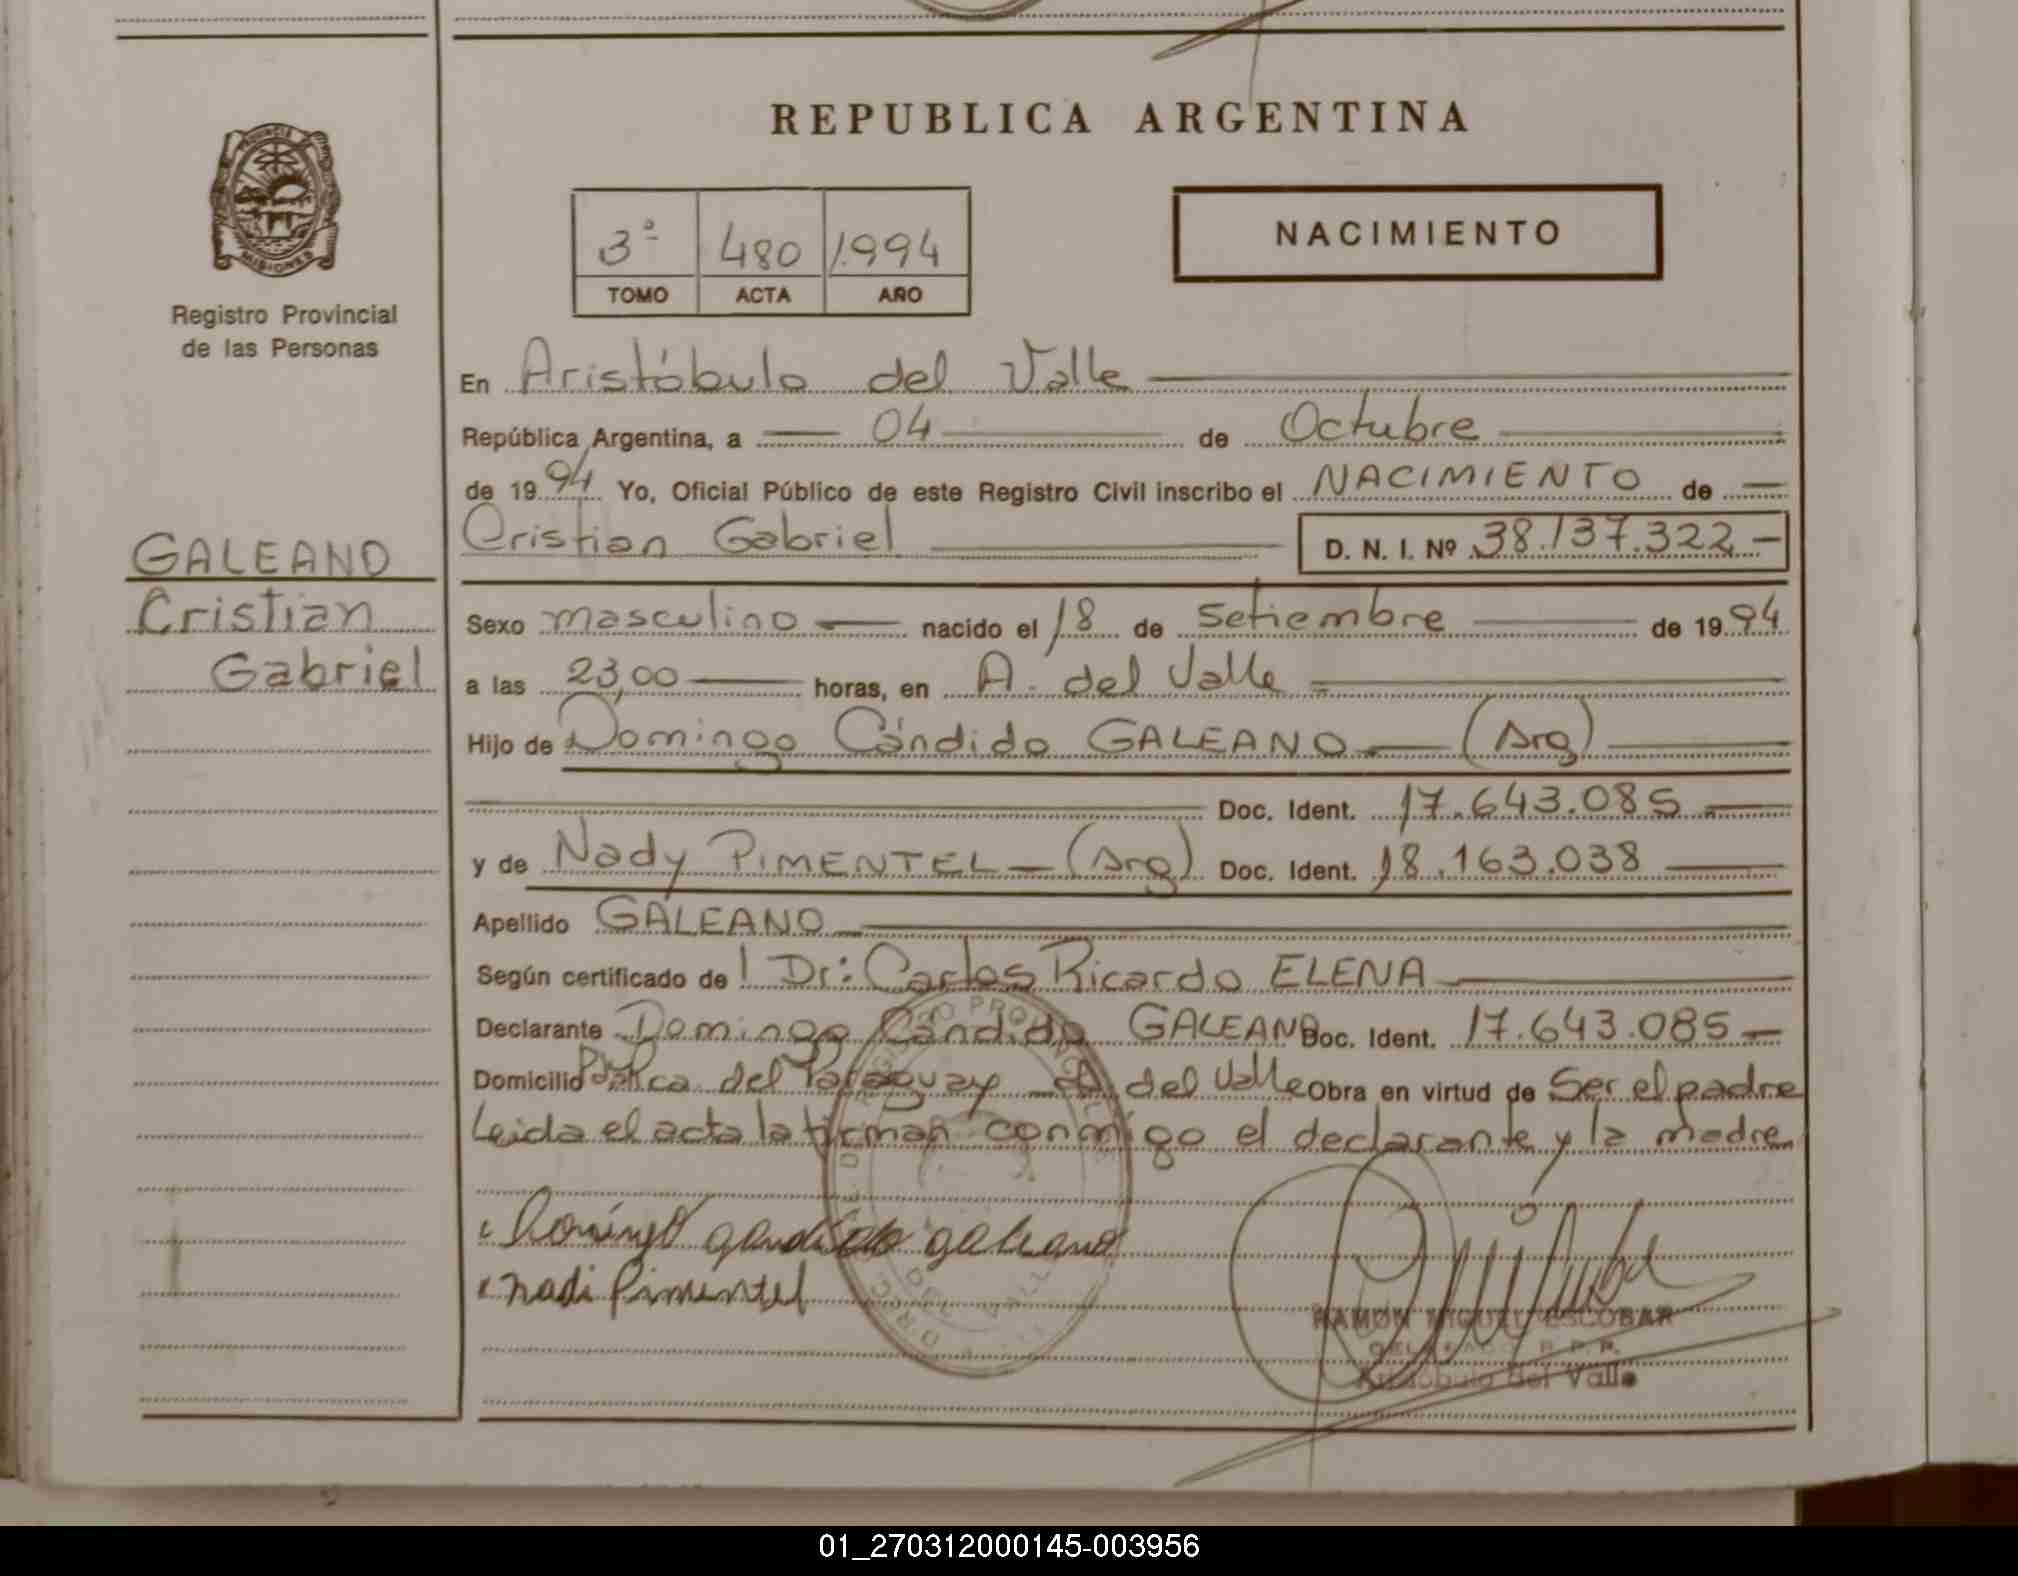 REPUBLICA ARGENTINA
PROVINCIA
MISIONES
Registro Provincial
de las Personas
3º 480 1.994
TOMO ACTA AÑO
NACIMIENTO
En Aristóbulo del Valle
República Argentina, a 04 de Octubre
de 1994 Yo, Oficial Público de este Registro Civil inscribo el NACIMIENTO de
Cristian Gabriel D. N. I. Nº 38.137.322
GALEANO
Cristian
Gabriel
Sexo masculino nacido el 18 de Setiembre de 1994
a las 23,00 horas, en A. del Valle
Hijo de Domingo Cándido GALEANO (Arg)
Doc. Ident. 17.643.085
y de Nady PIMENTEL (Arg) Doc. Ident. 18.163.038
Apellido GALEANO
Según certificado de Dr: Carlos Ricardo ELENA
Declarante Domingo Cándido GALEANO Doc. Ident. 17.643.085
Domicilio del Paraguay A. del Valle Obra en virtud de Ser el padre
Leida el acta la firman conmigo el declarante y la madre
Domingo gandido galeano
nadi Pimentel
RAMON MIGUEL ESCOBAR
DELEGADO R. P. P.
Aristóbulo del Valle
01_270312000145-003956